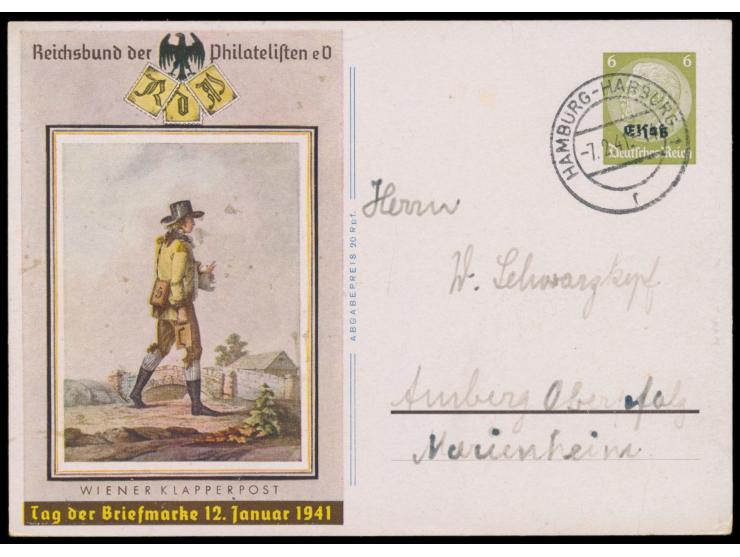 Reichsbund der Philatelisten e V
R d P
WIENER KLAPPERPOST
Tag der Briefmarke 12. Januar 1941
ABGABEPREIS 20 Rpf.
6 6
Elsaß
Deutsches Reich
HAMBURG-HARBURG 1
-7.
r
Herrn
W. Schwarzkopf
Amberg Oberpfalz
Marienheim.